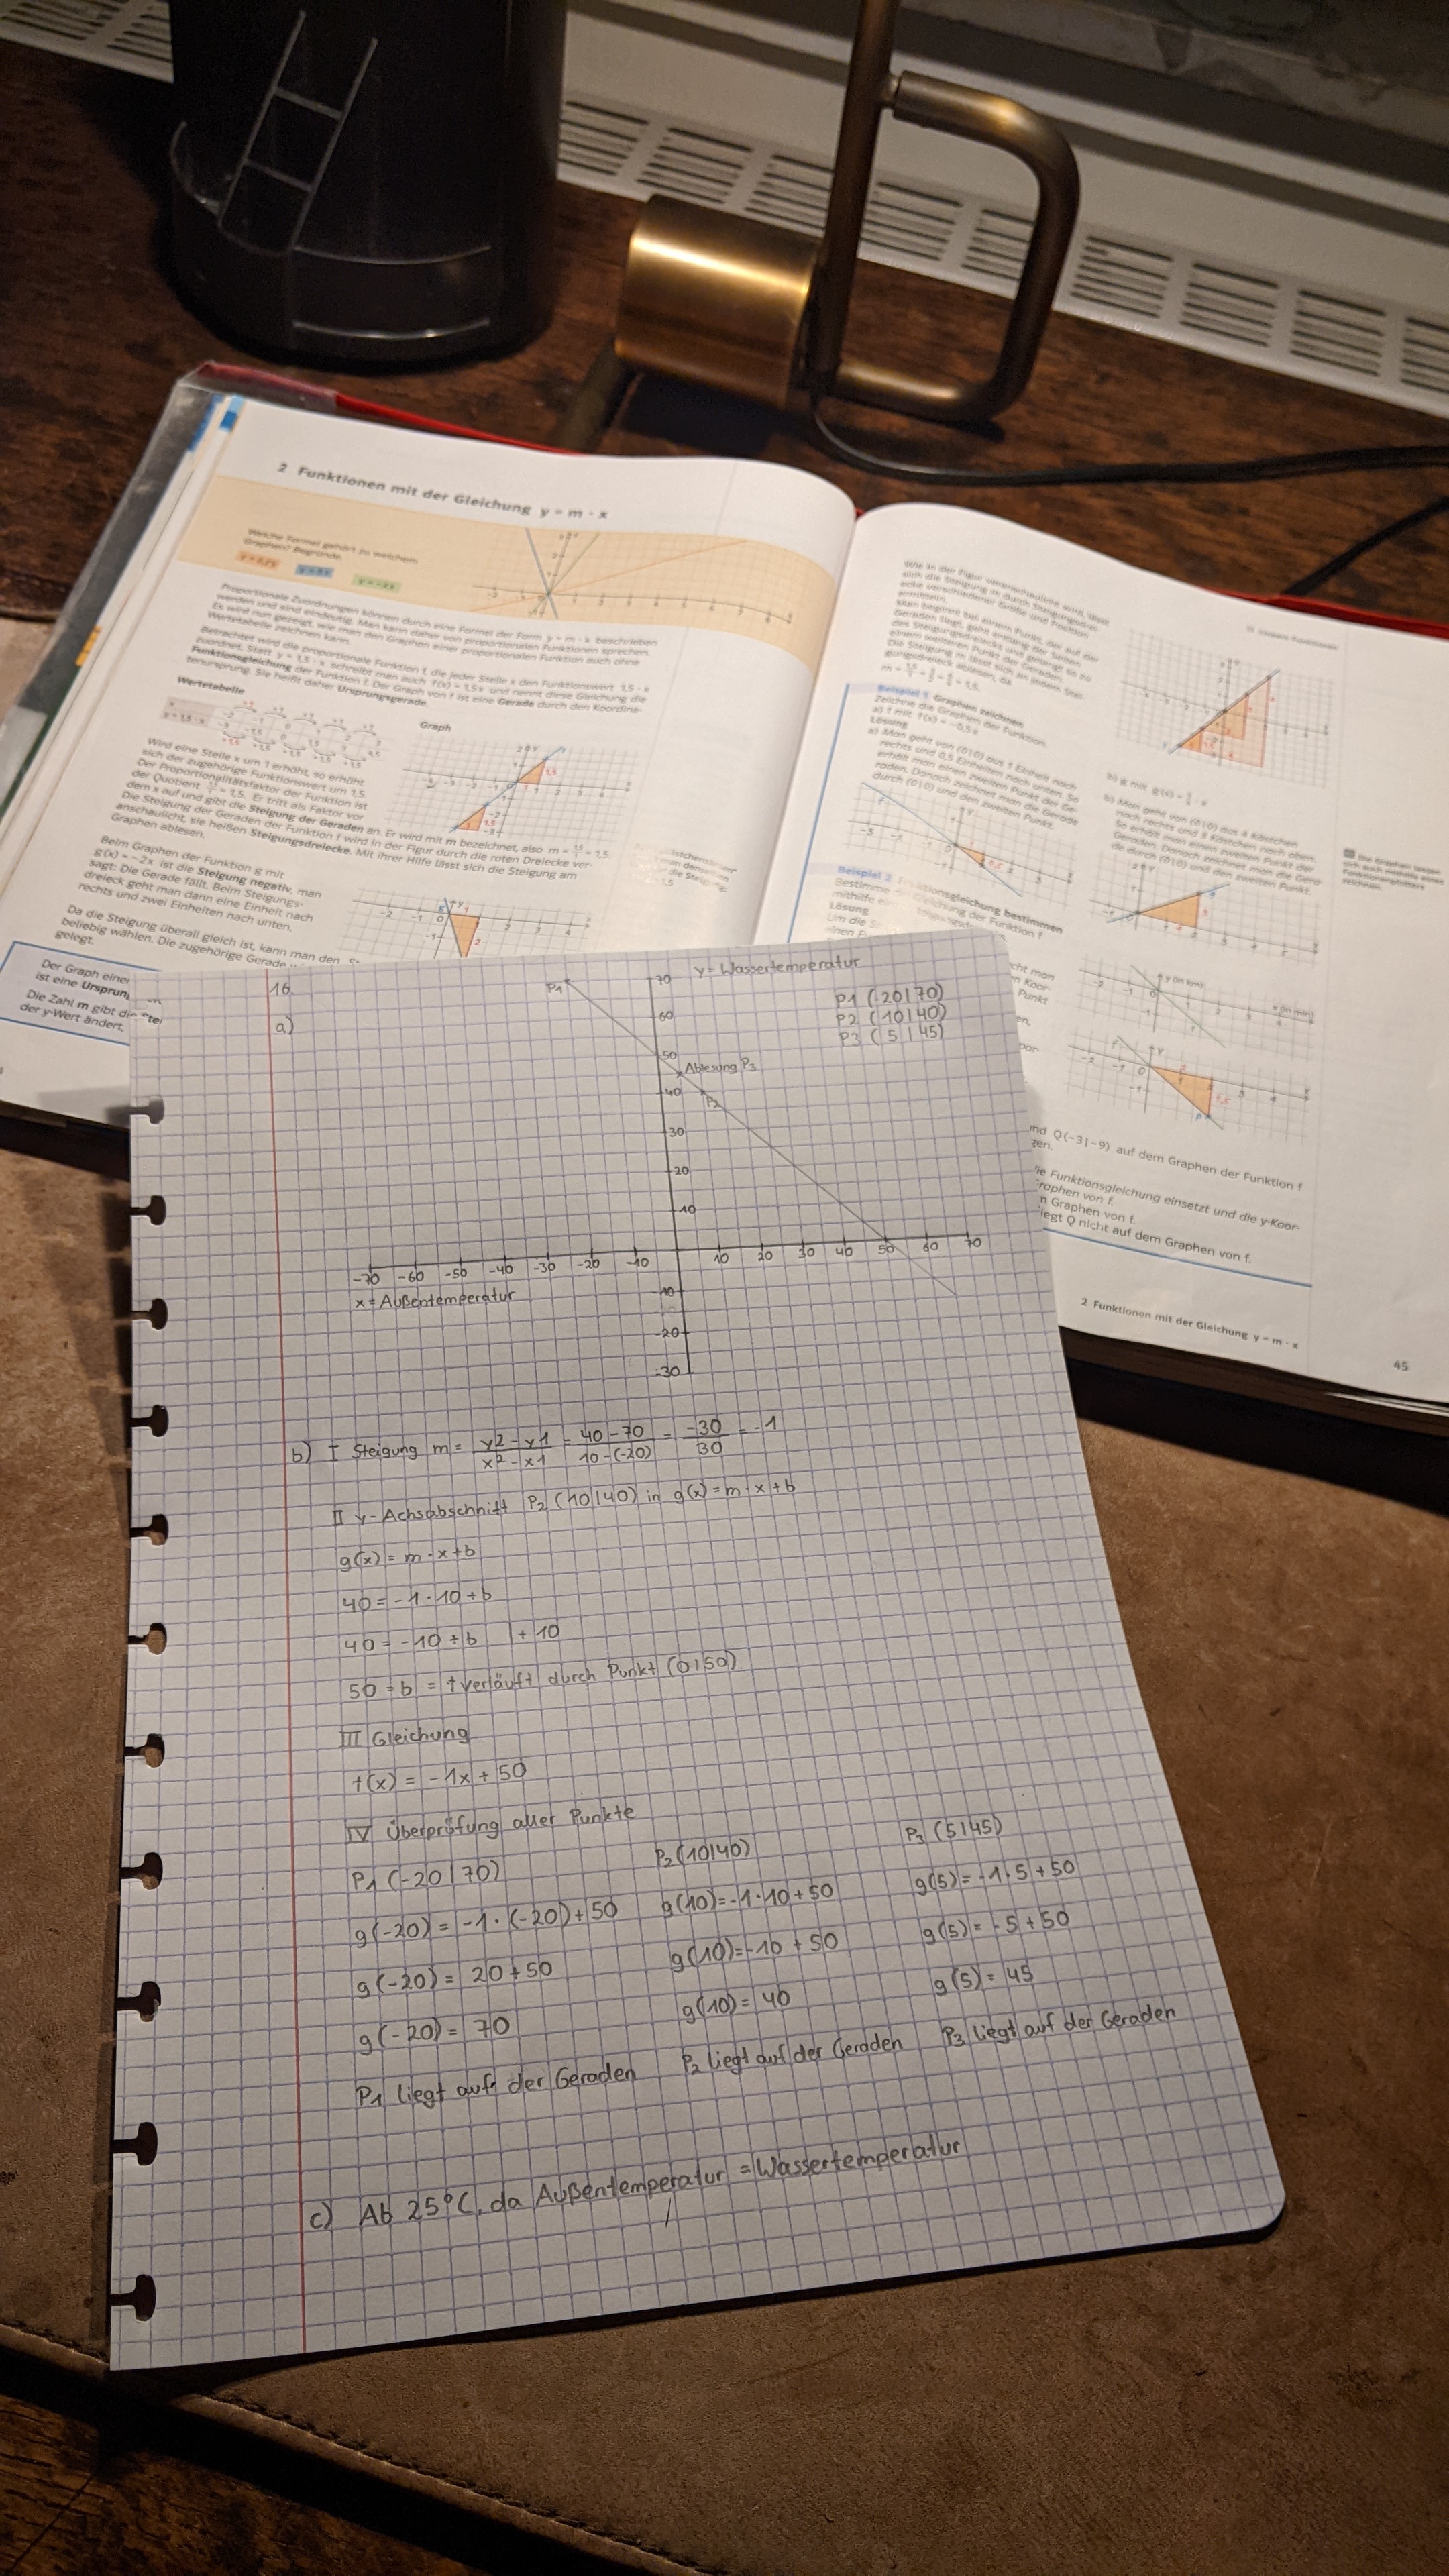 2 Funktionen mit der Gleichung y = m · x
Welche Formel gehört zu welchem
Graphen? Begründe.
Proportionale Zuordnungen können durch eine Formel der Form y = m · x beschrieben
werden und sind eindeutig. Man kann daher von proportionalen Funktionen sprechen.
Es wird nun gezeigt, wie man den Graphen einer proportionalen Funktion auch ohne
Wertetabelle zeichnen kann.
Betrachtet wird die proportionale Funktion f, die jeder Stelle x den Funktionswert 1,5 · x
zuordnet. Statt y = 1,5 · x schreibt man auch f(x) = 1,5x und nennt diese Gleichung die
Funktionsgleichung der Funktion f. Der Graph von f ist eine Gerade durch den Koordina-
tenursprung. Sie heißt daher Ursprungsgerade.
Wertetabelle
Graph
Wird eine Stelle x um 1 erhöht, so erhöht
sich der zugehörige Funktionswert um 1,5.
Der Proportionalitätsfaktor der Funktion ist
der Quotient = 1,5. Er tritt als Faktor vor
dem x auf und gibt die Steigung der Geraden an. Er wird mit m bezeichnet, also m = = 1,5
Die Steigung der Geraden der Funktion f wird in der Figur durch die roten Dreiecke ver-
anschaulicht, sie heißen Steigungsdreiecke. Mit ihrer Hilfe lässt sich die Steigung am
Graphen ablesen.
Beim Graphen der Funktion g mit
g(x) = -2x ist die Steigung negativ, man
sagt: Die Gerade fällt. Beim Steigungs-
dreieck geht man dann eine Einheit nach
rechts und zwei Einheiten nach unten.
Da die Steigung überall gleich ist, kann man den
beliebig wählen. Die zugehörige Gerade
gelegt.
Der Graph einer
ist eine Ursprun
Die Zahl m gibt die Stei
der y-Wert ändert,
Wie in der Figur veranschaulicht wird, lässt
sich die Steigung m durch Steigungsdrei-
ecke verschiedener Größe und Position
ermitteln.
Man beginnt bei einem Punkt, der auf der
Geraden liegt, geht entlang der Seiten
des Steigungsdreiecks und gelangt so zu
einem weiteren Punkt der Geraden.
Die Steigung m lässt sich an jedem Stei-
gungsdreieck ablesen, da
Beispiel 1 Graphen zeichnen
Zeichne die Graphen der Funktion.
a) f mit f(x) = -0,5x
Lösung
a) Man geht von (0|0) aus 1 Einheit nach
rechts und 0,5 Einheiten nach unten. So
erhält man einen zweiten Punkt der Ge-
raden. Danach zeichnet man die Gerade
durch (0|0) und den zweiten Punkt.
b) g mit g(x) = · x
b) Man geht von (0|0) aus 4 Kästchen
nach rechts und 3 Kästchen nach oben.
So erhält man einen zweiten Punkt der
Geraden. Danach zeichnet man die Gera-
de durch (0|0) und den zweiten Punkt.
Beispiel 2 Funktionsgleichung bestimmen
Bestimme die Gleichung der Funktion f
mithilfe eines Steigungsdreiecks.
Lösung
Um die
einen P
y (in km)
x (in min)
nd Q(-3|-9) auf dem Graphen der Funktion f
ie Funktionsgleichung einsetzt und die y-Koor-
raphen von f.
n Graphen von f.
iegt Q nicht auf dem Graphen von f.
2 Funktionen mit der Gleichung y = m · x
45
16.
a)
y = Wassertemperatur
P1 (-20|70)
P2 (10|40)
P3 (5|45)
P1
70
60
50
Ablesung P3
40
P2
30
20
10
-70 -60 -50 -40 -30 -20 -10 10 20 30 40 50 60 70
x = Außentemperatur
-10
-20
-30
b) I Steigung m = y2 - y1 / x2 - x1 = 40 - 70 / 10 - (-20) = -30 / 30 = -1
II y-Achsabschnitt P2 (10|40) in g(x) = m · x + b
g(x) = m · x + b
40 = -1 · 10 + b
40 = -10 + b | + 10
50 = b = f verläuft durch Punkt (0|50).
III Gleichung
f(x) = -1x + 50
IV Überprüfung aller Punkte
P1 (-20|70)
g(-20) = -1 · (-20) + 50
g(-20) = 20 + 50
g(-20) = 70
P1 liegt auf der Geraden
P2 (10|40)
g(10) = -1 · 10 + 50
g(10) = -10 + 50
g(10) = 40
P2 liegt auf der Geraden
P3 (5|45)
g(5) = -1 · 5 + 50
g(5) = -5 + 50
g(5) = 45
P3 liegt auf der Geraden
c) Ab 25°C, da Außentemperatur = Wassertemperatur